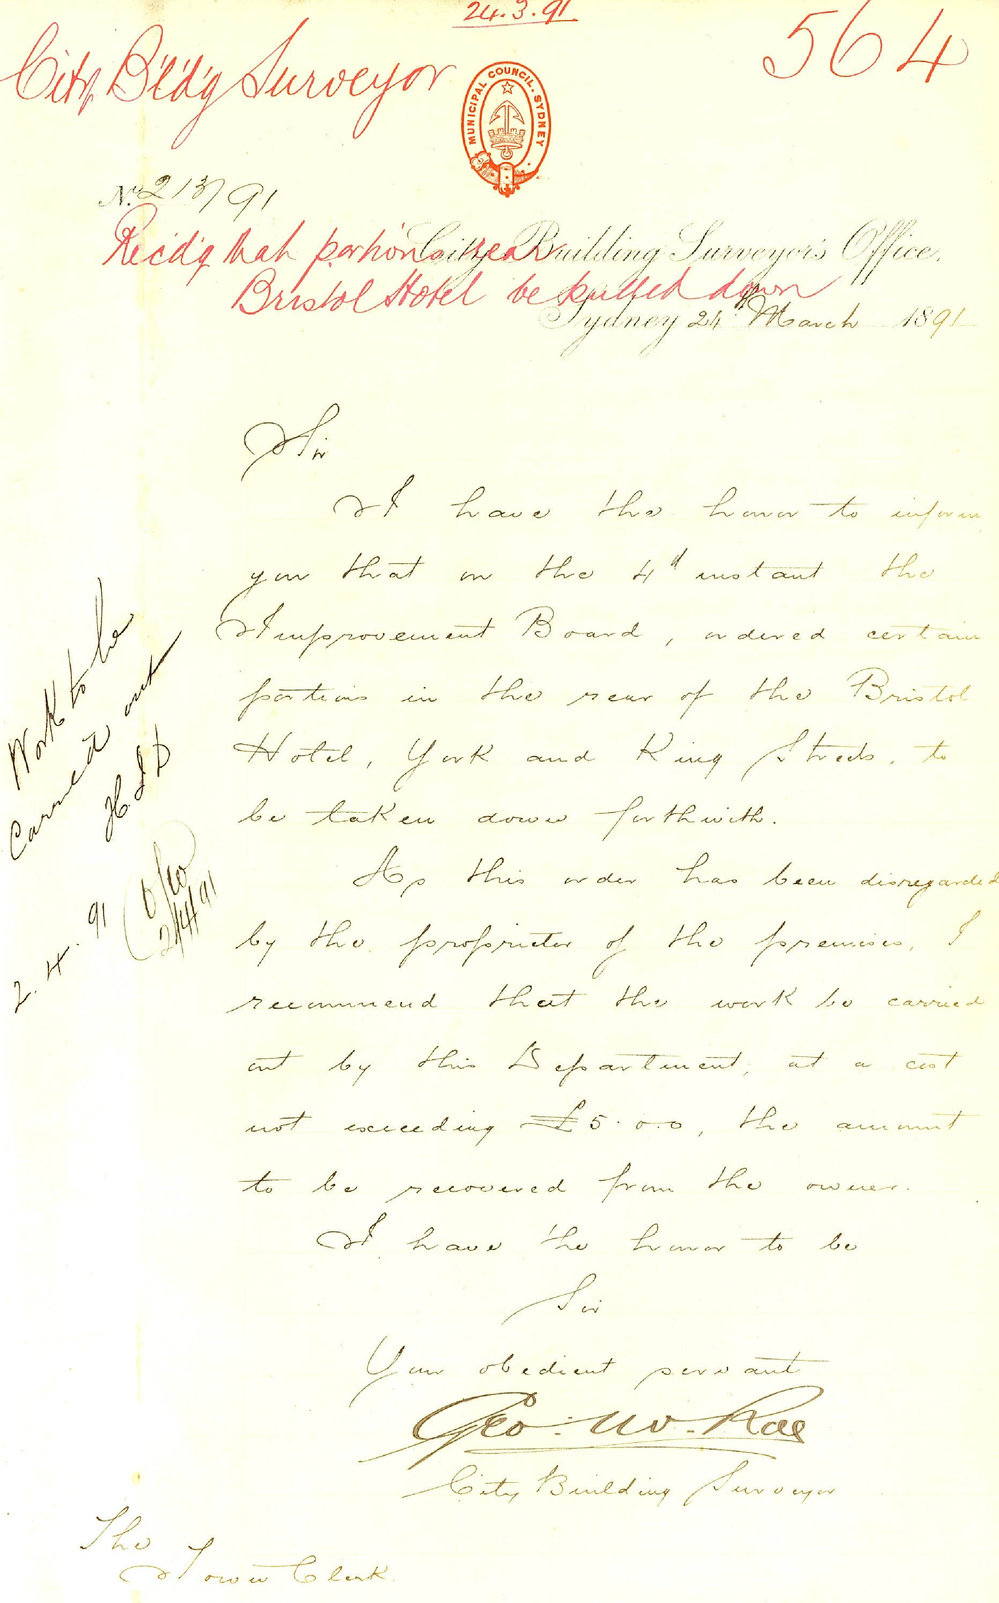 24.3.91
564
City Bldg Surveyor
MUNICIPAL COUNCIL. SYDNEY
No. 213/91
City Building Surveyor's Office,
Rec'd'g that portion rear
Bristol Hotel be pulled down
Sydney 24th March 1891
Sir
I have the honor to inform
you that on the 4th instant the
Improvement Board, ordered certain
portions in the rear of the Bristol
Hotel, York and King Streets, to
be taken down forthwith.
As this order has been disregarded
by the proprietor of the premises, I
recommend that the work be carried
out by this Department, at a cost
not exceeding £5.0.0, the amount
to be recovered from the owner.
I have the honor to be
Sir
Your obedient servant
Geo. McRae
City Building Surveyor
The
Town Clerk
Work to be
Carried out
2.4.91
2/4/91